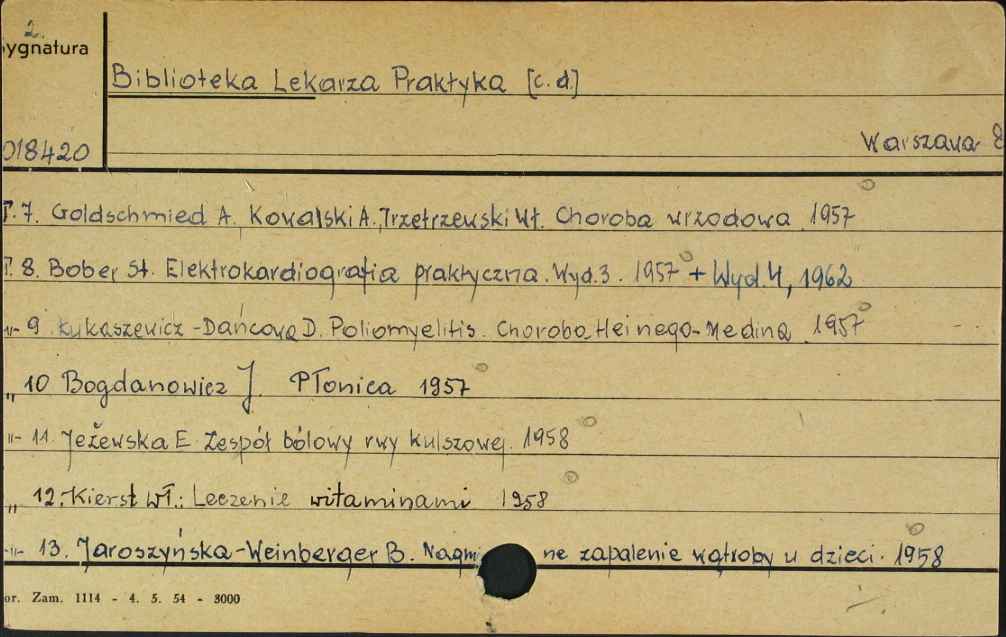 2.
Sygnatura
Biblioteka Lekarza Praktyka [c.d.]
018420
Warszawa 8
T. 7. Goldschmied A., Kowalski A., Trzetrzewski Wł. Choroba wrzodowa. 1957
T. 8. Bober St. Elektrokardiografia praktyczna. Wyd. 3. 1957 + Wyd. 4, 1962
-"- 9. Łukaszewicz-Dańcowa D. Poliomyelitis. Choroba Heinego-Medina. 1957
" 10 Bogdanowicz J. Płonica 1957
-"- 11. Jeżewska E. Zespół bólowy rwy kulszowej. 1958
" 12. Kierst Wł.: Leczenie witaminami 1958
-"- 13. Jaroszyńska-Weinberger B. Nagm ne zapalenie wątroby u dzieci. 1958
or. Zam. 1114 - 4. 5. 54 - 3000